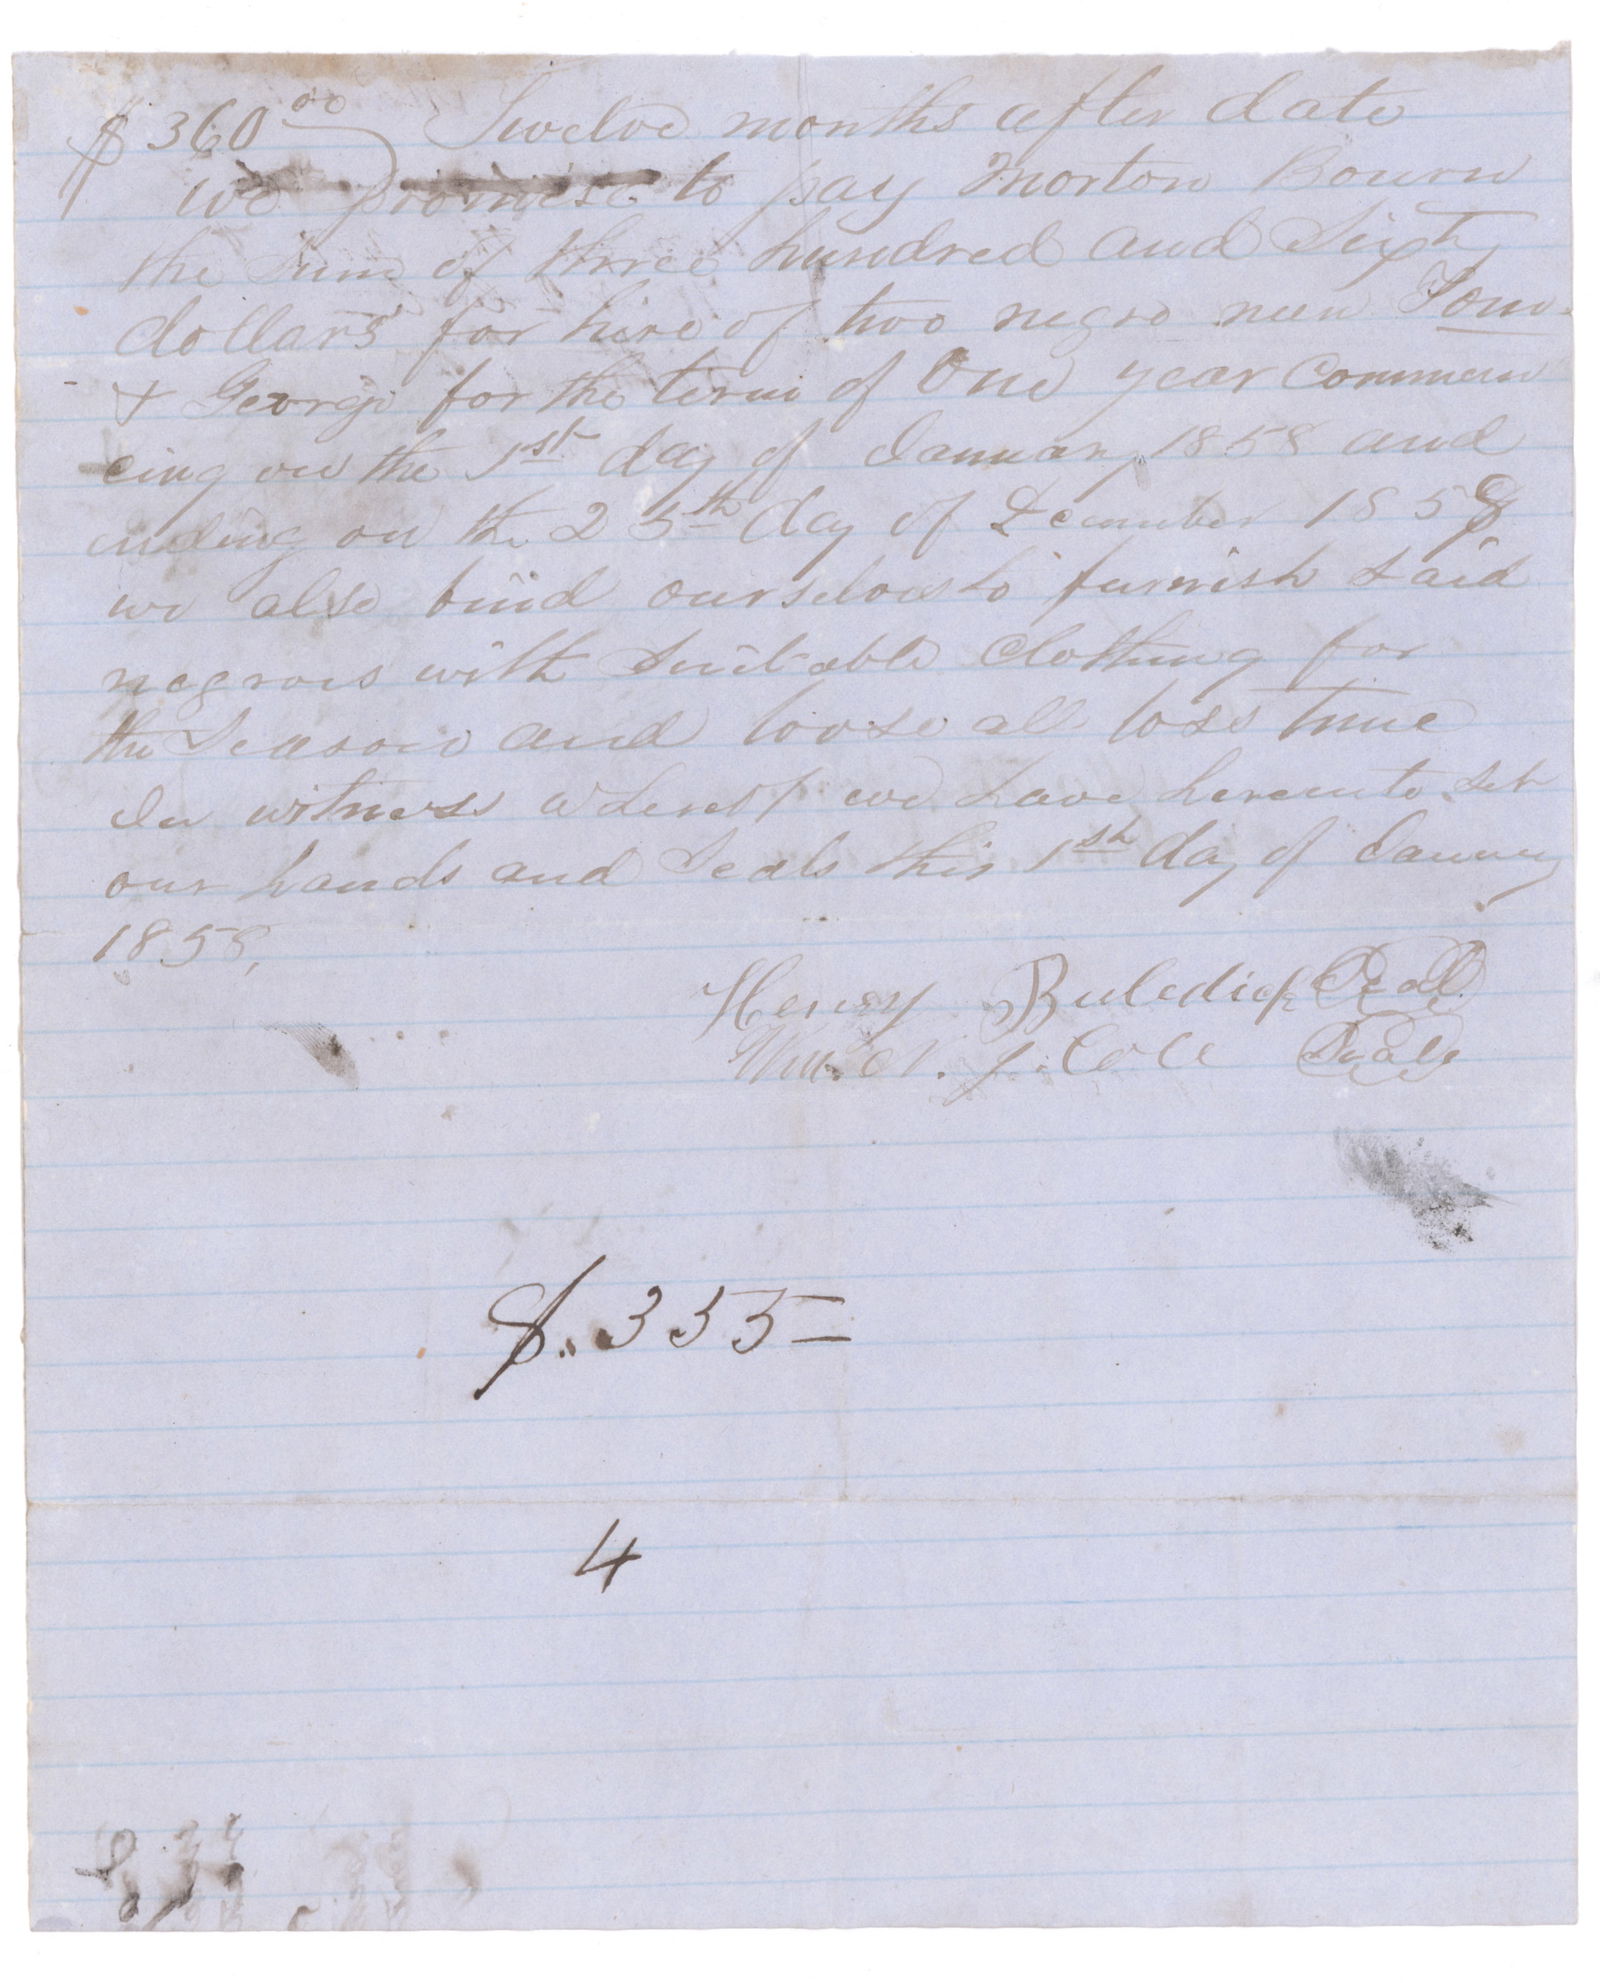 $360.00 Twelve months after date
we promise to pay Morton Bourn
the sum of three hundred and Sixty
dollars for hire of two negro men Tom
& George for the term of One year Commen
cing on the 1st day of January 1858 and
ending on the 25th day of December 1858
we also bind ourselves to furnish said
negroes with suitable Clothing for
the Season and loose all loss time
In witness whereof we have hereunto set
our hands and Seals this 1st day of January
1858,
Henry Buledick Seal
Wm. N. J. Cole Seal
$. 355=
4